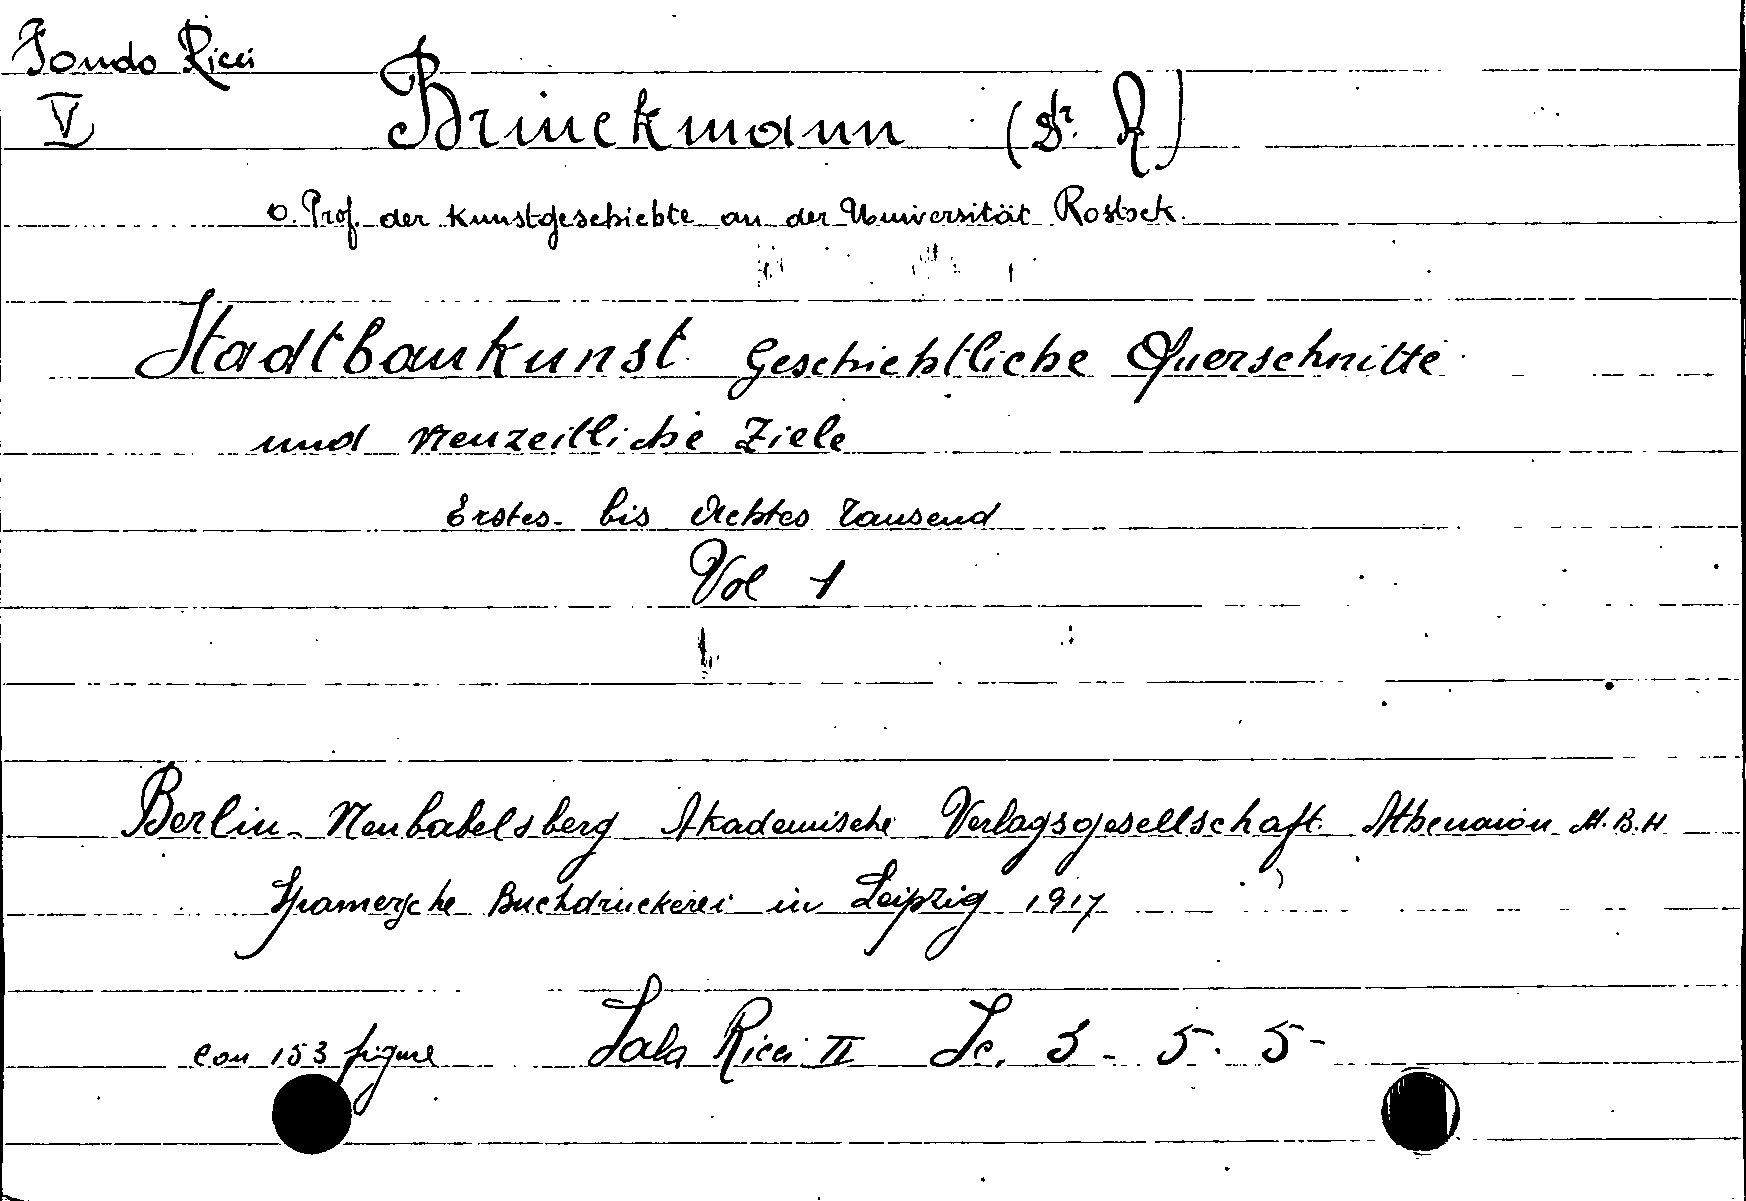 Fondo Ricci
V Brinckmann (Dr. A)
o. Prof. der Kunstgeschichte an der Universität Rostock.
Stadtbaukunst Geschichtliche Querschnitte
und Neuzeitliche Ziele
Erstes- bis Achtes Tausend
Vol 1
Berlin-Neubabelsberg Akademische Verlagsgesellschaft Athenaion M.B.H
Spamersche Buchdruckerei in Leipzig 1917
con 153 figure Sala Ricci II Sc. 3 - 5. 5-